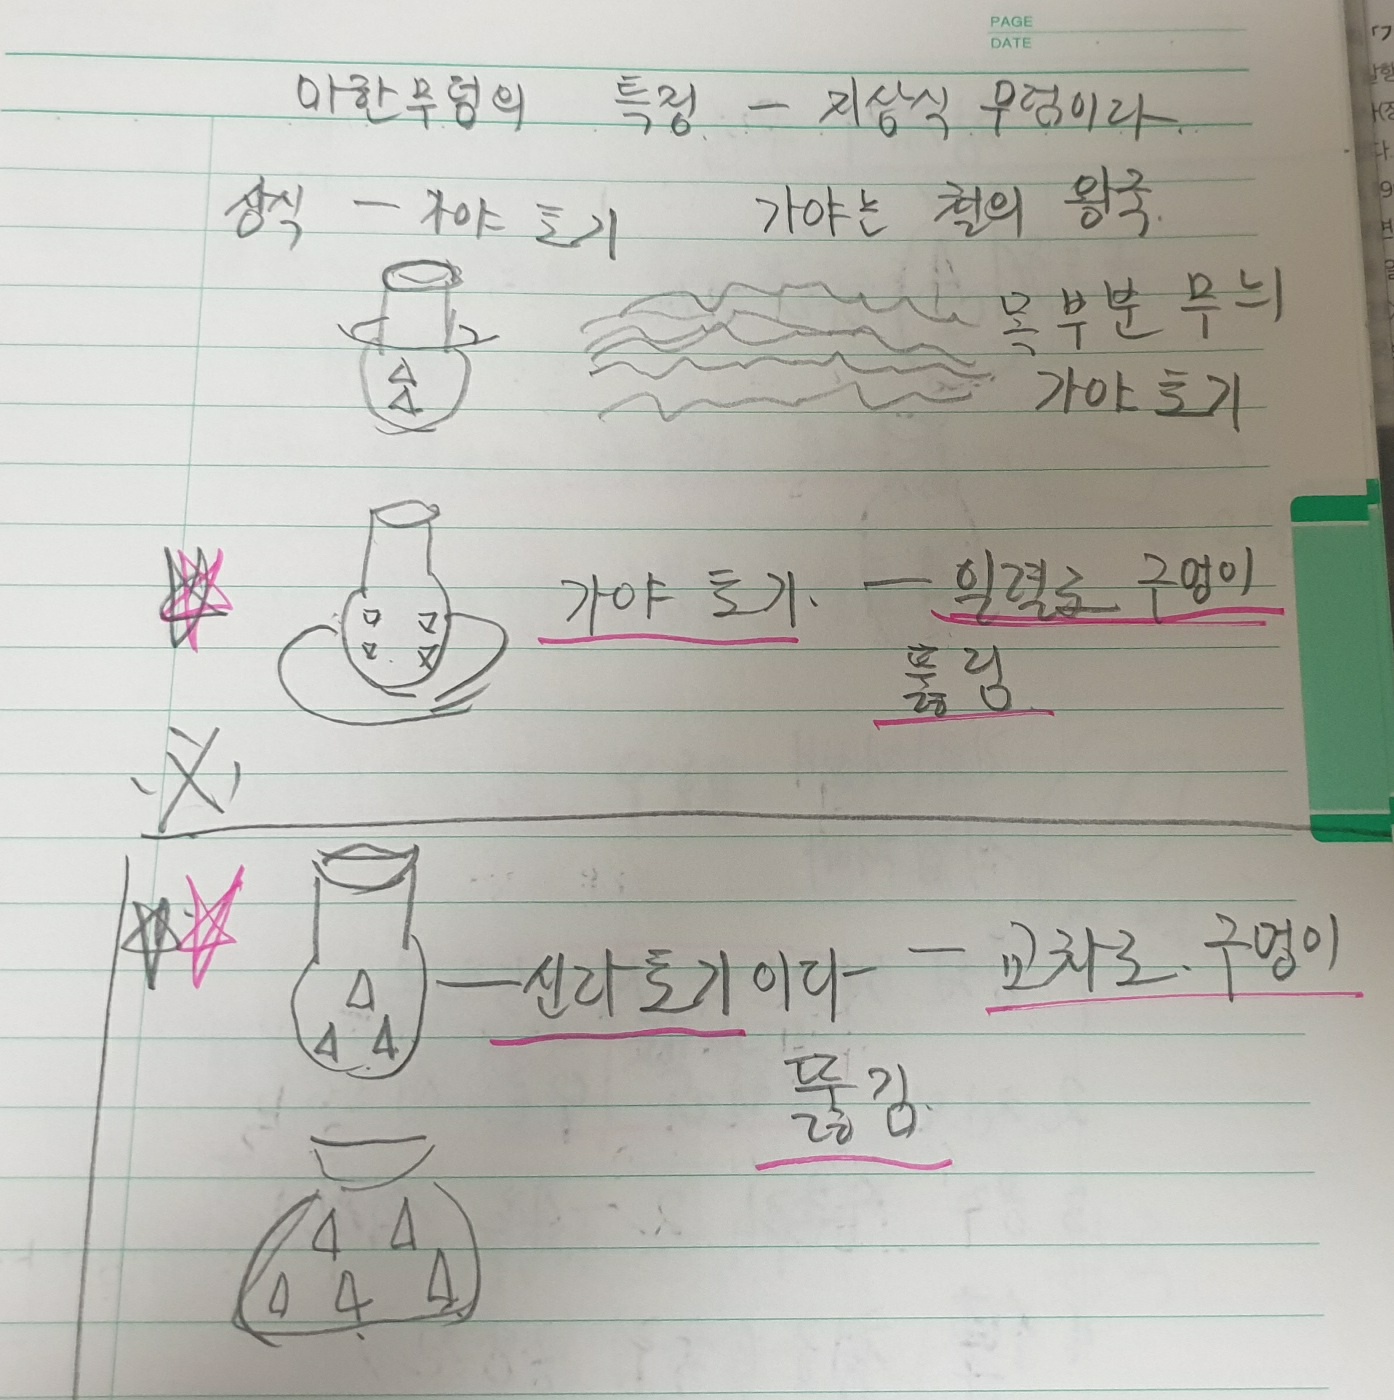 PAGE
DATE
마한무덤의 특징 - 지상식 무덤이다.
상식 - 가야 토기 가야는 철의 왕국.
목 부분 무늬
가야 토기
가야 토기. - 일렬로 구멍이
뚫림
신라 토기 이다 - 교차로. 구멍이
뚫김.